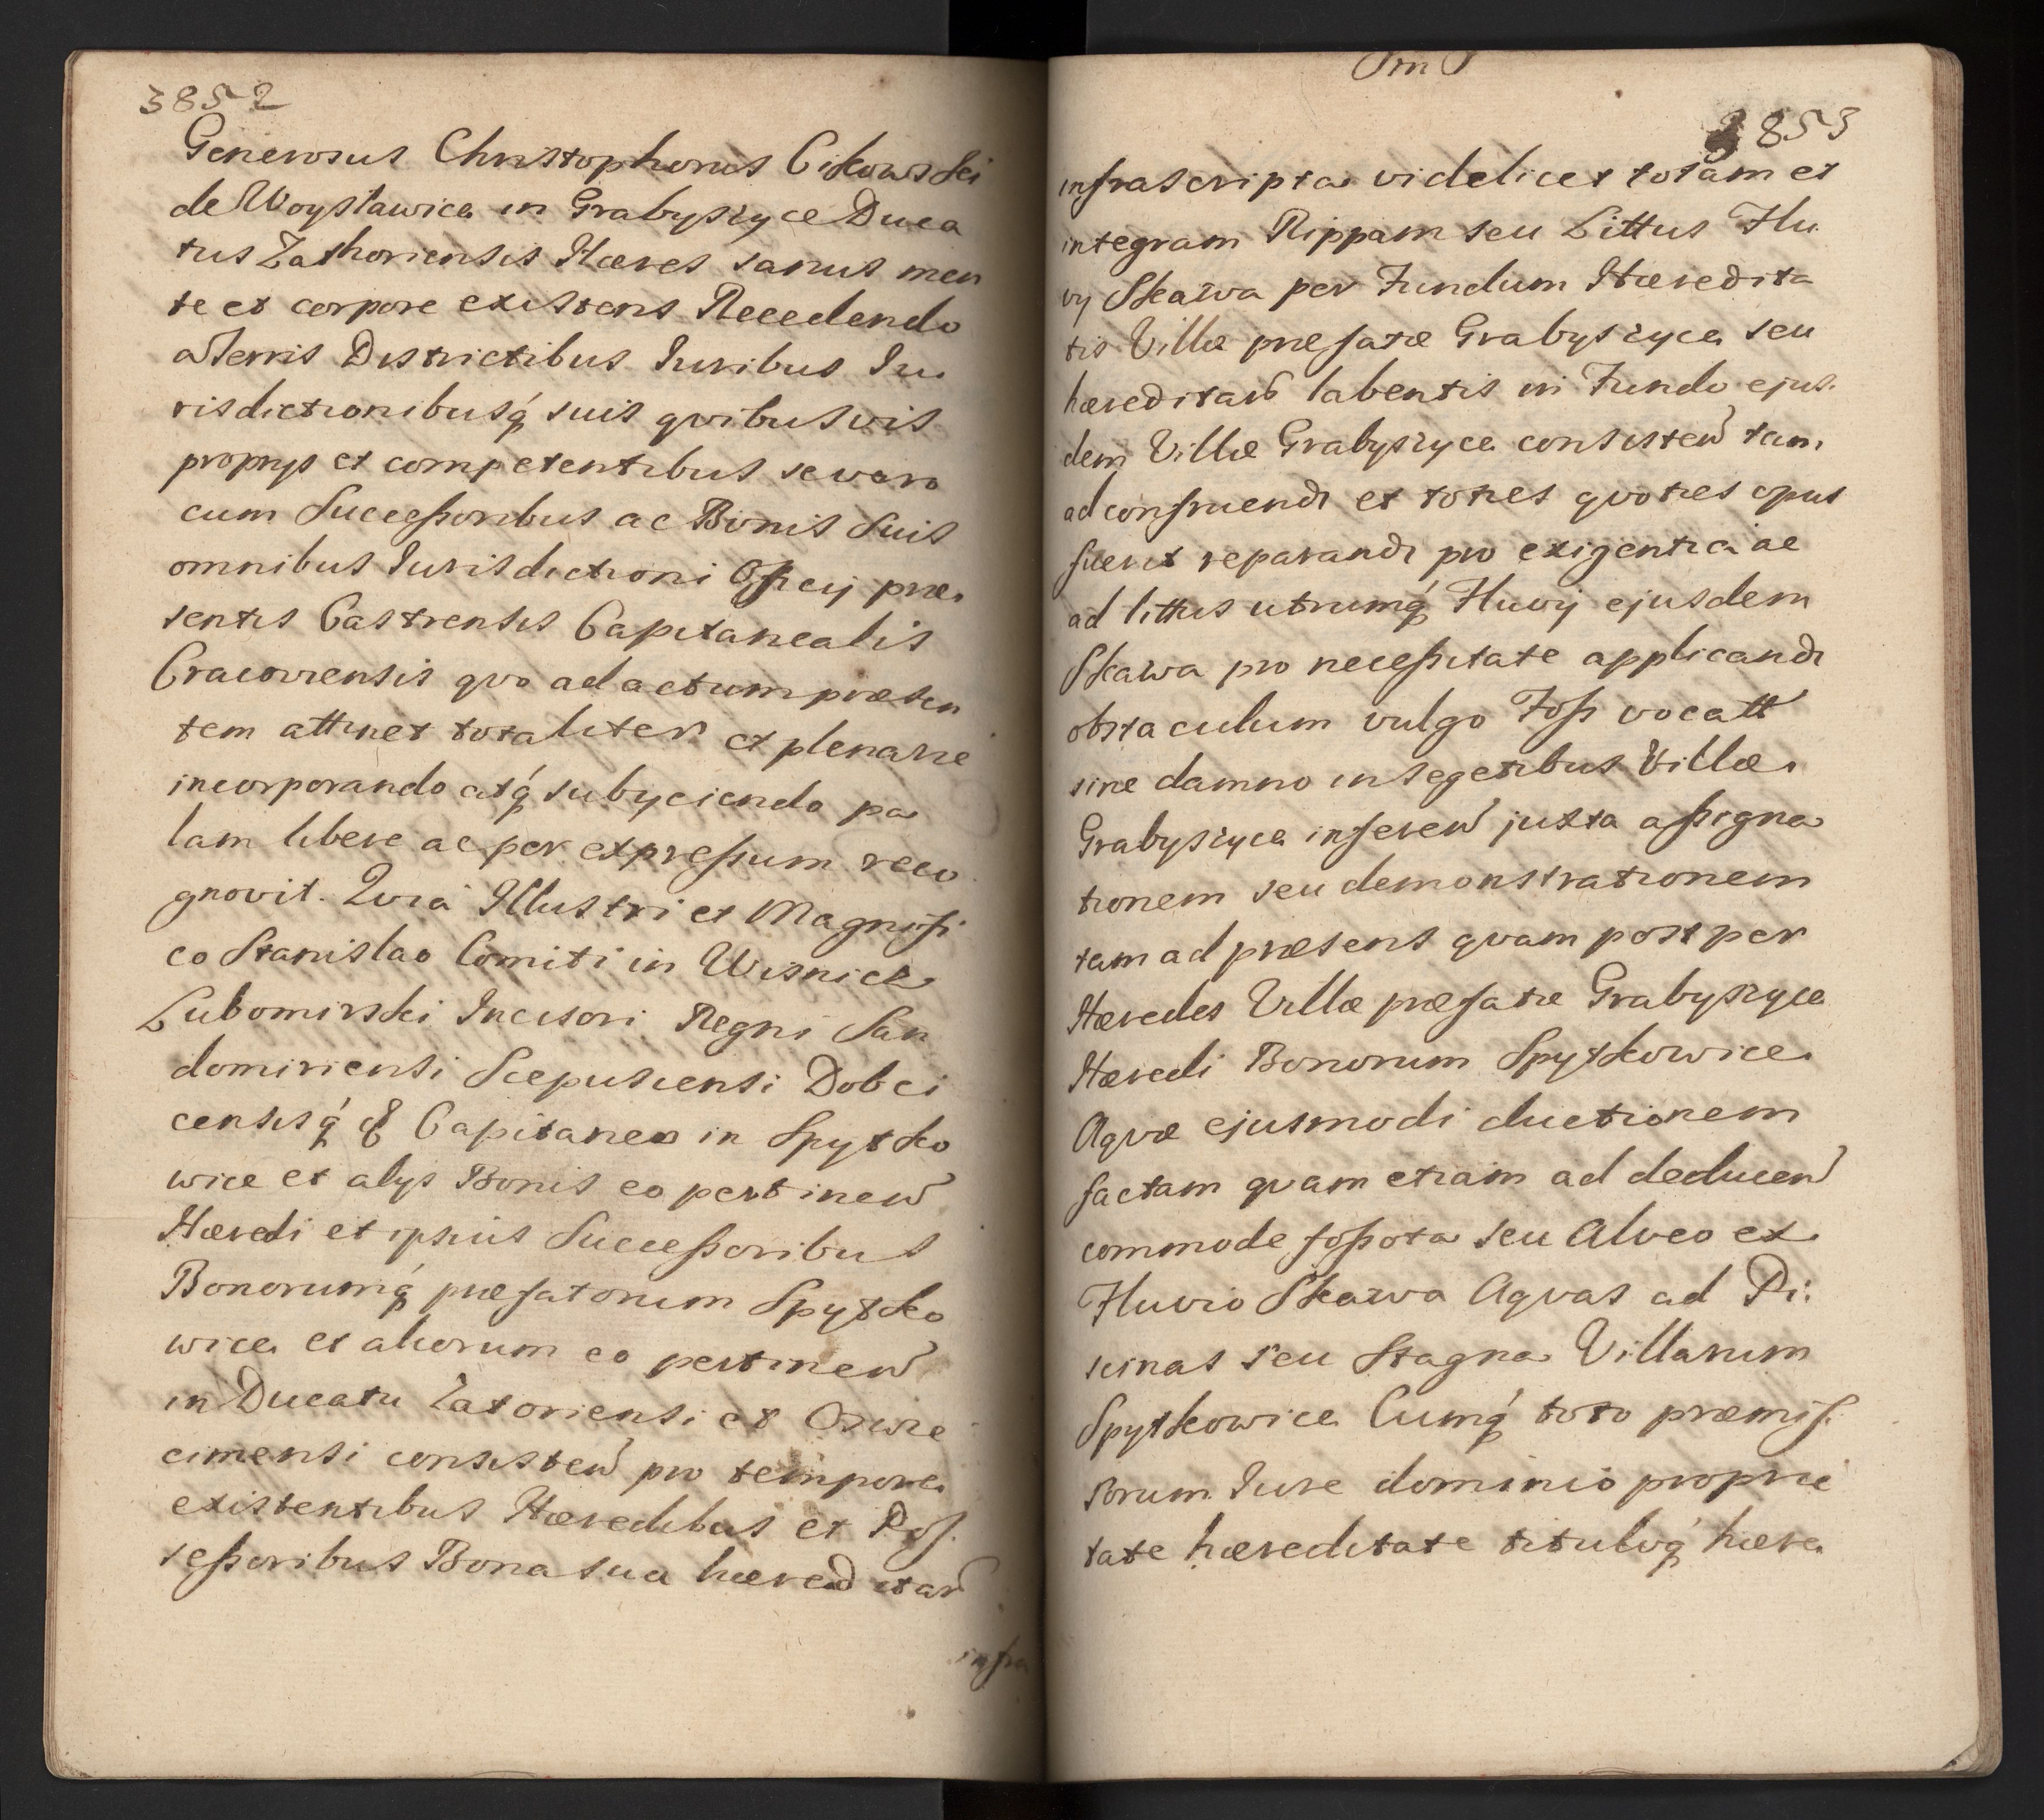 3852
Generosus Christophorus Cikowski
de Woysławice in Grabyszyce Duca
tus Zathoriensis Hæres sanus men
te et corpore existens Recedendo
a Terris Districtibus Iuribus Iu
risdictionibusq́ suis qvibusvis
proprys et competentibus se vero
cum Succeßoribus ac Bonis Suis
omnibus Iurisdictioni Officij præ
sentis Castrensis Capitanealis
Cracoviensis qvo ad actum præsen
tem attinet totaliter et plenarie
incorporando atq́ subyciendo pa
lam libere ac per expreßum reco
gnovit. Qvia Illustri et Magnifi
co Stanislao Comiti in Wisnicz
Lubomirski Incisori Regni San
domiriensi Scepusiensi Dobci
censisq́ Capitaneo in Spytko
wice et alys Bonis eo pertinen
Hæredi et ipsius Succeßoribus
Bonorumq́ præfatorum Spytko
wice et aliorum eo pertinen
in Ducatu Zatoriensi et Oswie
cimensi consisten pro tempore
existentibus Hæredibus et Pos
seßoribus Bona sua hæreditar
infra
3853
infrascripta videlicet totam et
integram Rippam seu Littus Flu
vij Skawa per Fundum Hæredita
tis Villæ præfatæ Grabyszyce seu
hæreditar labentis in Fundo ejus
dem Villæ Grabyszyce consisten tam
ad construendi et toties qvoties opus
fuerit reparandi pro exigentia ac
ad littus utrumq́ Fluvij ejusdem
Skawa pro neceßitate applicandi
obstaculum vulgo Joß vocatt
sine damno in segetibus Villæ
Grabyszyce inferen juxta aßigna
tionem seu demonstrationem
tam ad præsens qvam post per
Hæredes Villæ præfatæ Grabyszyce
Hæredi Bonorum Spytkowice
Aqvæ ejusmodi ductionem
factam qvam etiam ad deducen
commode foßota seu Alveo ex
Fluvio Skawa Aqvas ad Pi:
scinas seu Stagna Villarum
Spytkowice Cumq́ toto præmis
sorum Iure dominio proprie
tate hæreditate tituloq́ hære